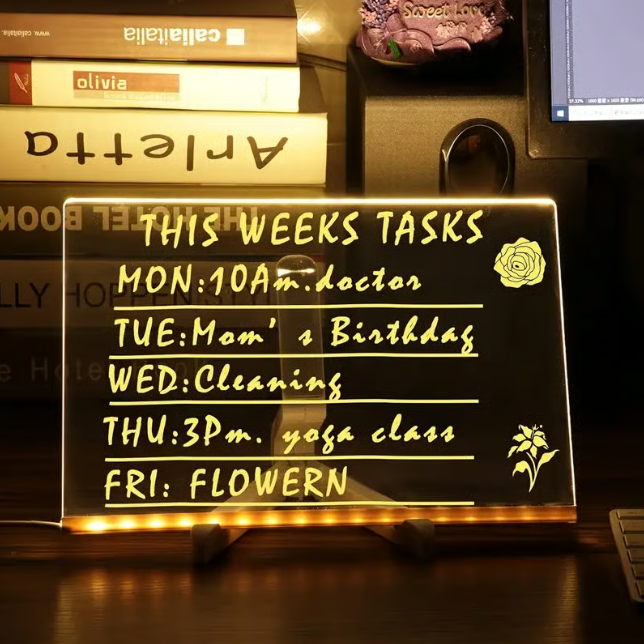 Sweet Love
www.callaitalia
callaitalia
olivia
Arletta
THE HOTEL BOOK
THIS WEEKS TASKS
MON:10Am.doctor
TUE:Mom's Birthdag
WED:Cleaning
THU:3Pm. yoga class
FRI: FLOWERN